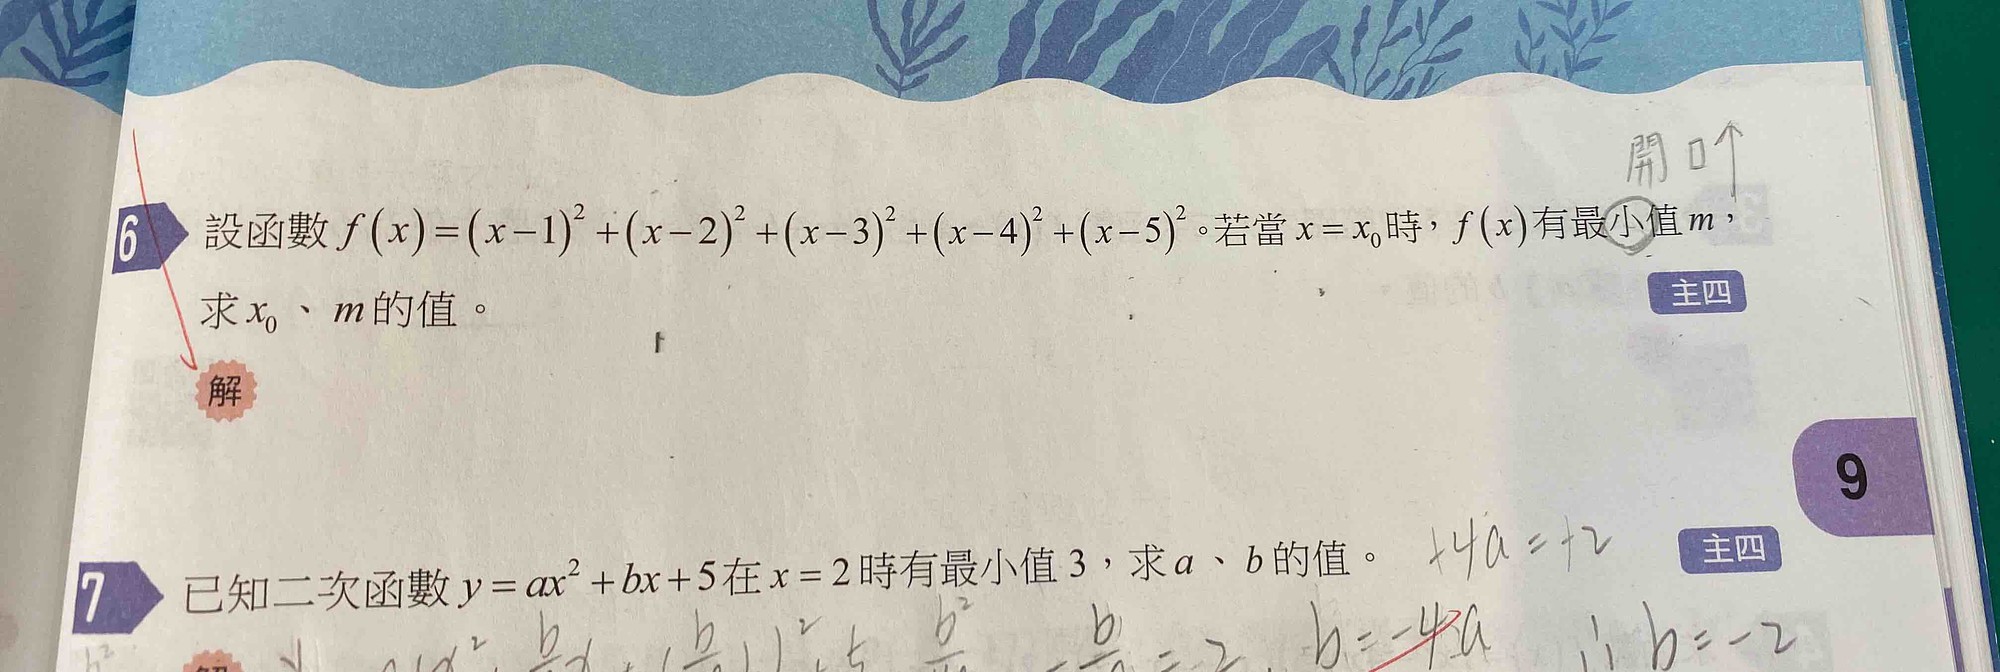 開口↑
6 設函數 f(x)=(x−1)²+(x−2)²+(x−3)²+(x−4)²+(x−5)²。若當 x=x₀時，f(x)有最小值m，
求 x₀、m的值。
主四
解
9
7 已知二次函數 y=ax²+bx+5在 x=2時有最小值 3，求 a、b的值。
+4a=+2
主四
b=-4a
∴ b=-2